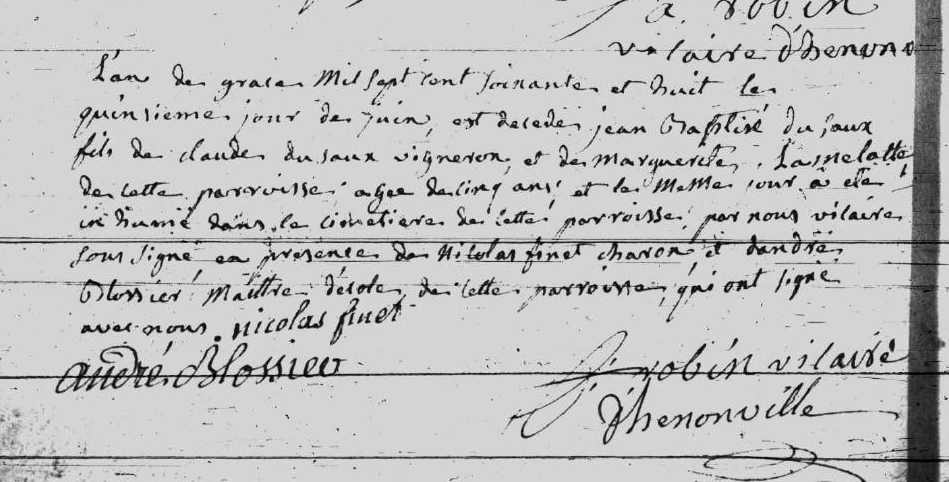 a. robin
vicaire d'henonv
L'an de grace Mil sept cent soixante et huit le
quinsieme jour de juin, est decedé jean Baptiste du saux
fils de claude du saux vigneron et de Marguerite
de cette parroisse agee de cinq ans et le Meme jour à été
inhumé dans le cimetiere de cette parroisse par nous vicaire
soussigné en presence de Nicolas finet charon et d'andré
Blossier Maitre d'ecole de cette parroisse qui ont signé
avec nous. nicolas finet
andré Blossier
robin vicaire
d'henonville